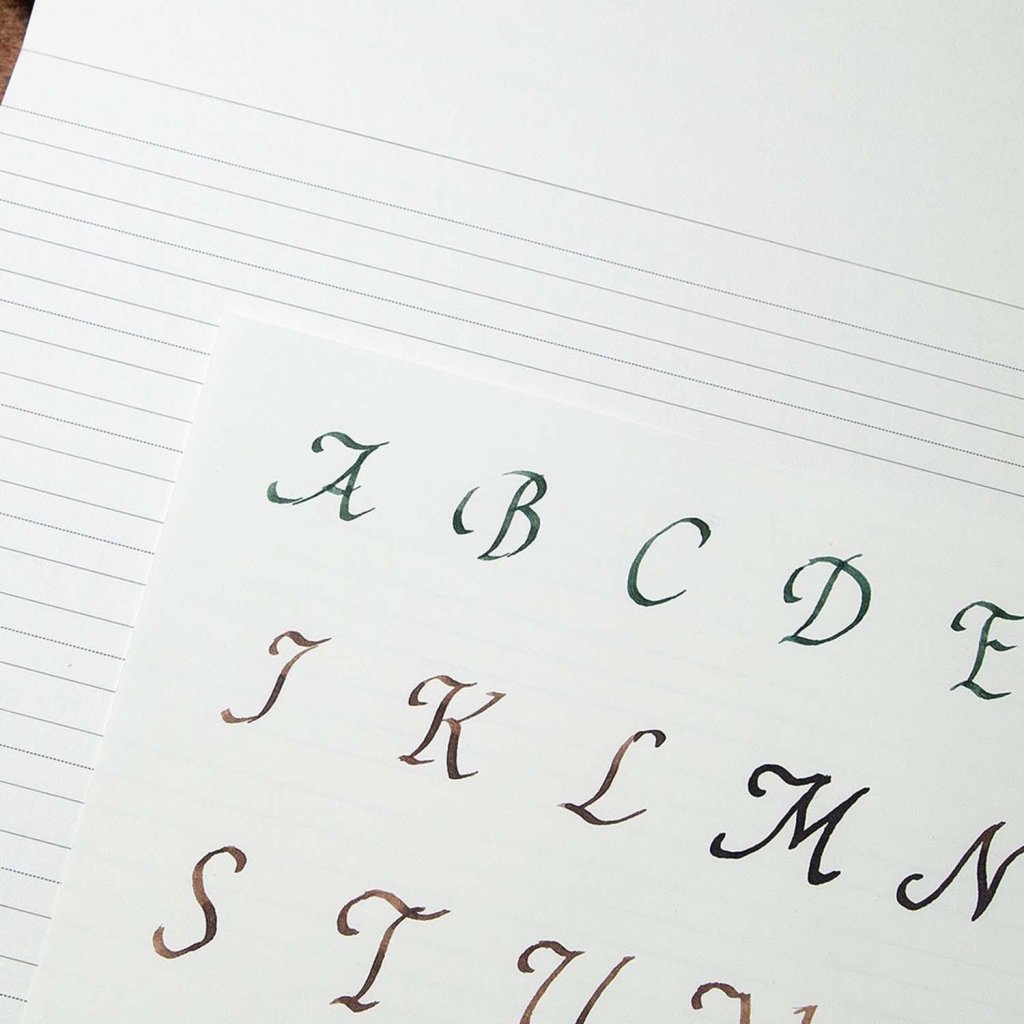 A B C D E
J K L M N
S T U